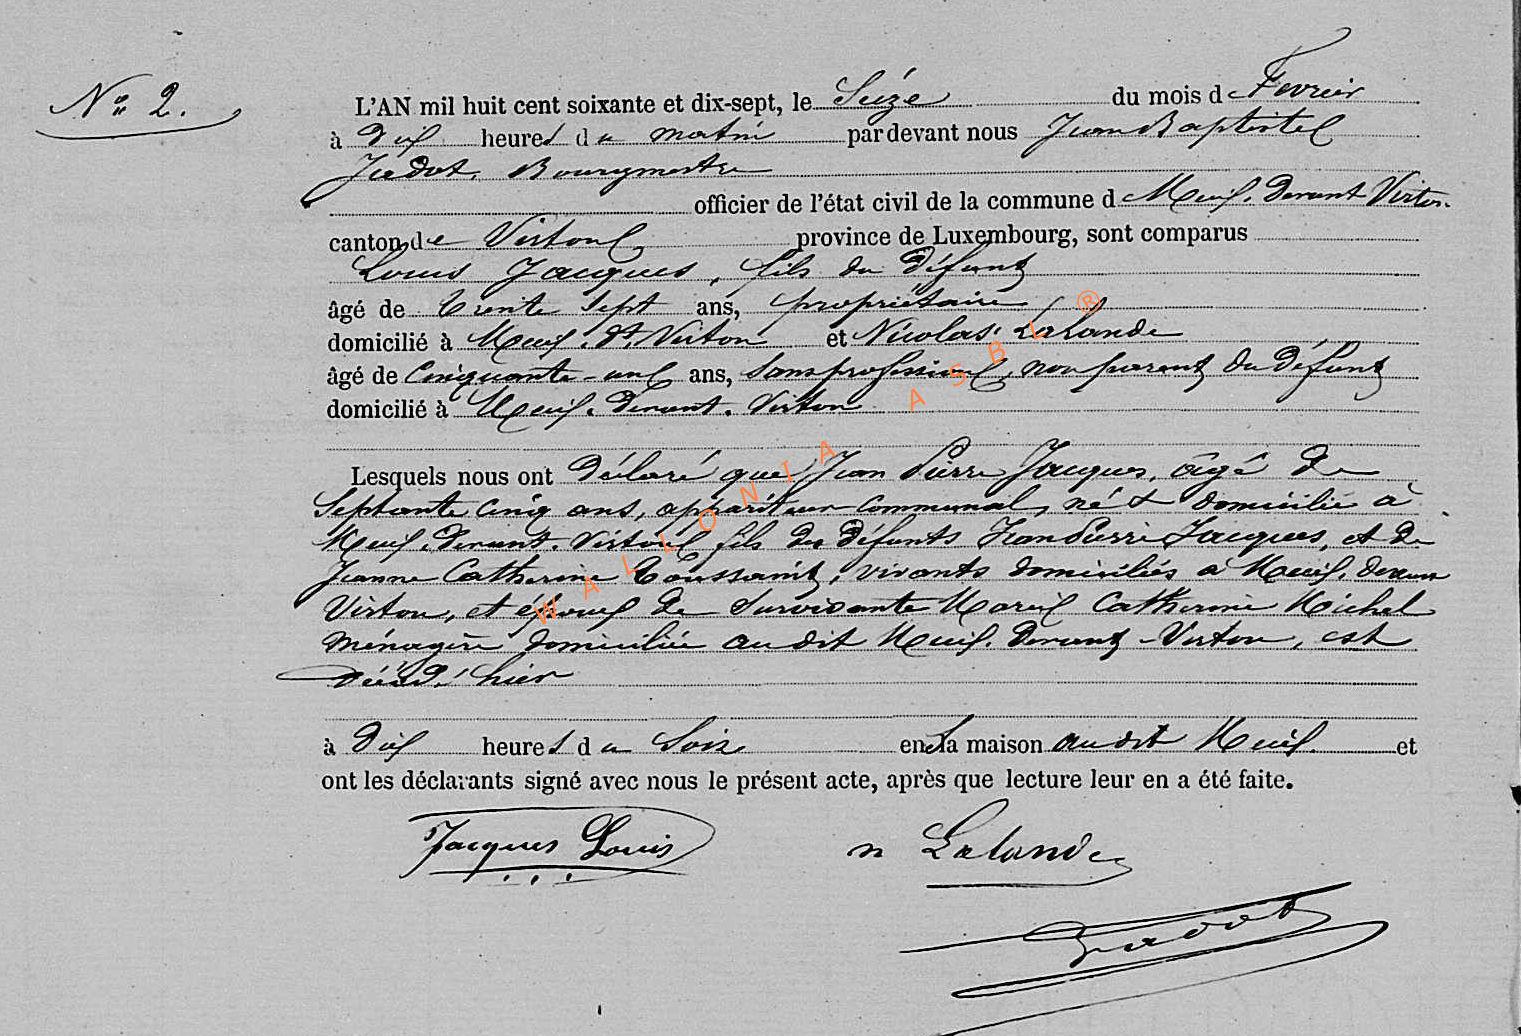 N° 2.
L'AN mil huit cent soixante et dix-sept, le Seize du mois d Fevrier
à dix heures du matin par devant nous Jean Baptiste
Judot, Bourgmestre
officier de l'état civil de la commune d Meix. Devant Virton.
canton de Virton province de Luxembourg, sont comparus
Louis Jacques, fils du défunt
âgé de trente sept ans, propriétaire
domicilié à Meix. dt. Virton et Nicolas Lalande
âgé de Cinquante-un ans, sans profession, non parent du défunt
domicilié à Meix. Devant. Virton
Lesquels nous ont déclaré que Jean Pierre Jacques, âgé de
Septante cinq ans, appariteur communal, né & domicilié à
Meix. Devant. Virton fils des défunts Jean Pierre Jacques, et de
Jeanne Catherine Toussaint, vivants domiciliés à Meix. devant
Virton, et époux de Survivante Marie Catherine Michel
ménagère domiciliée au dit Meix. Devant-Virton, est
décédé hier
à dix heures du Soir en sa maison audit Meix. et
ont les déclarants signé avec nous le présent acte, après que lecture leur en a été faite.
Jacques Louis n Lalande
Judot
WALLONIA ASBL ®